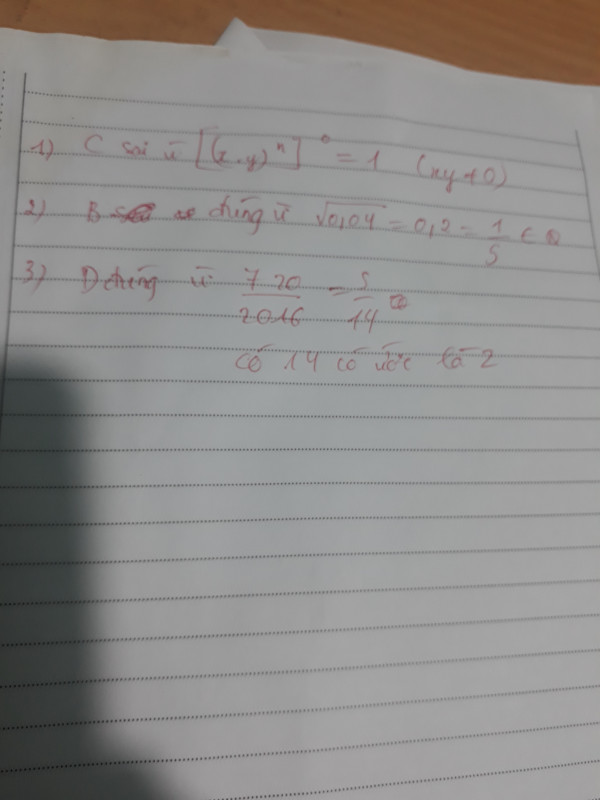 1) C sai vì [(x.y)ⁿ]⁰ = 1 (xy ≠ 0)
2) B đúng vì √0,04 = 0,2 = 1/5 ∈ Q
3) D đúng vì 720/2016 = 5/14
có 14 có ước là 2